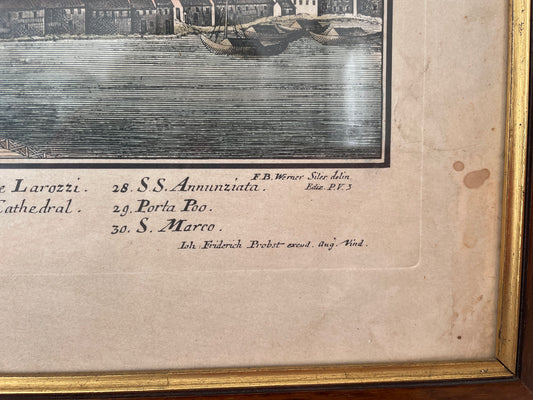 e Larozzi. 28. S. S. Annunziata. F. B. Werner Siles delin
Cathedral. 29. Porta Poo. Ediz. P. V. 3
30. S. Marco.
Ioh. Friderich Probst excud. Aug. Vind.